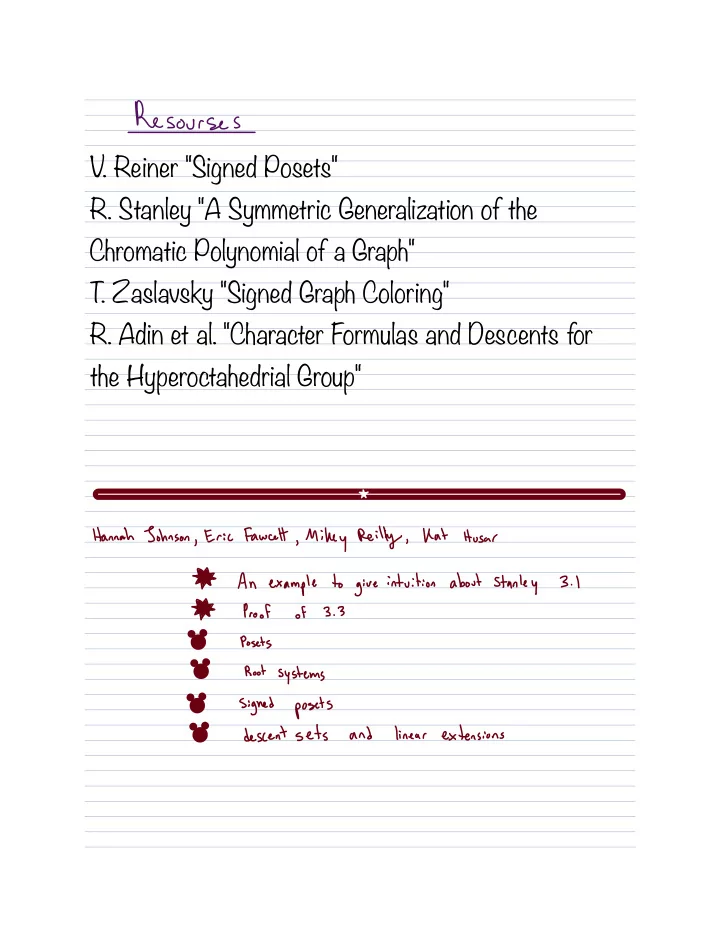 Resourses
V. Reiner "Signed Posets"
R. Stanley "A Symmetric Generalization of the
Chromatic Polynomial of a Graph"
T. Zaslavsky "Signed Graph Coloring"
R. Adin et al. "Character Formulas and Descents for
the Hyperoctahedrial Group"
Hannah Johnson, Eric Fawcett, Mikey Reilly, Kat Husar
An example to give intuition about Stanley 3.1
Proof of 3.3
Posets
Root systems
Signed posets
descent sets and linear extensions